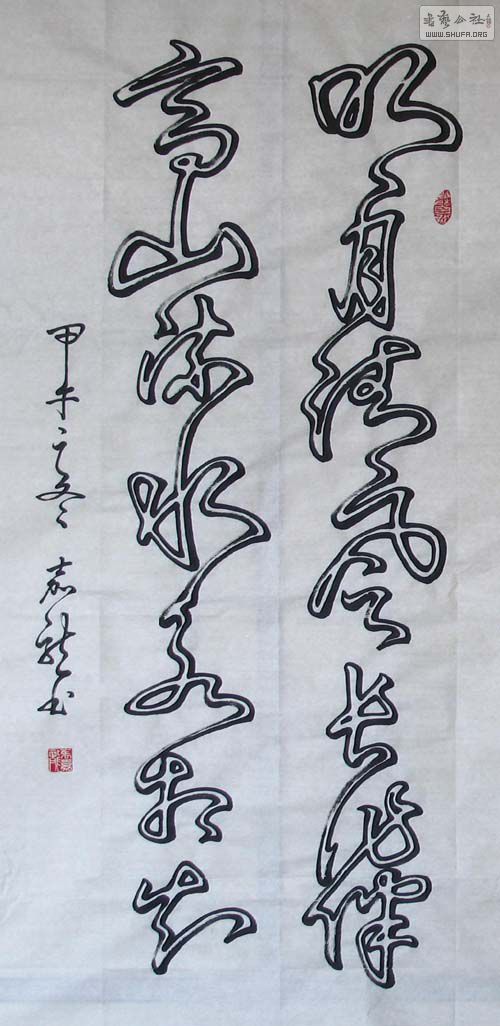 书艺公社
WWW.SHUFA.ORG
明月清风长作伴
高山流水永相知
甲午之冬 嘉龙书